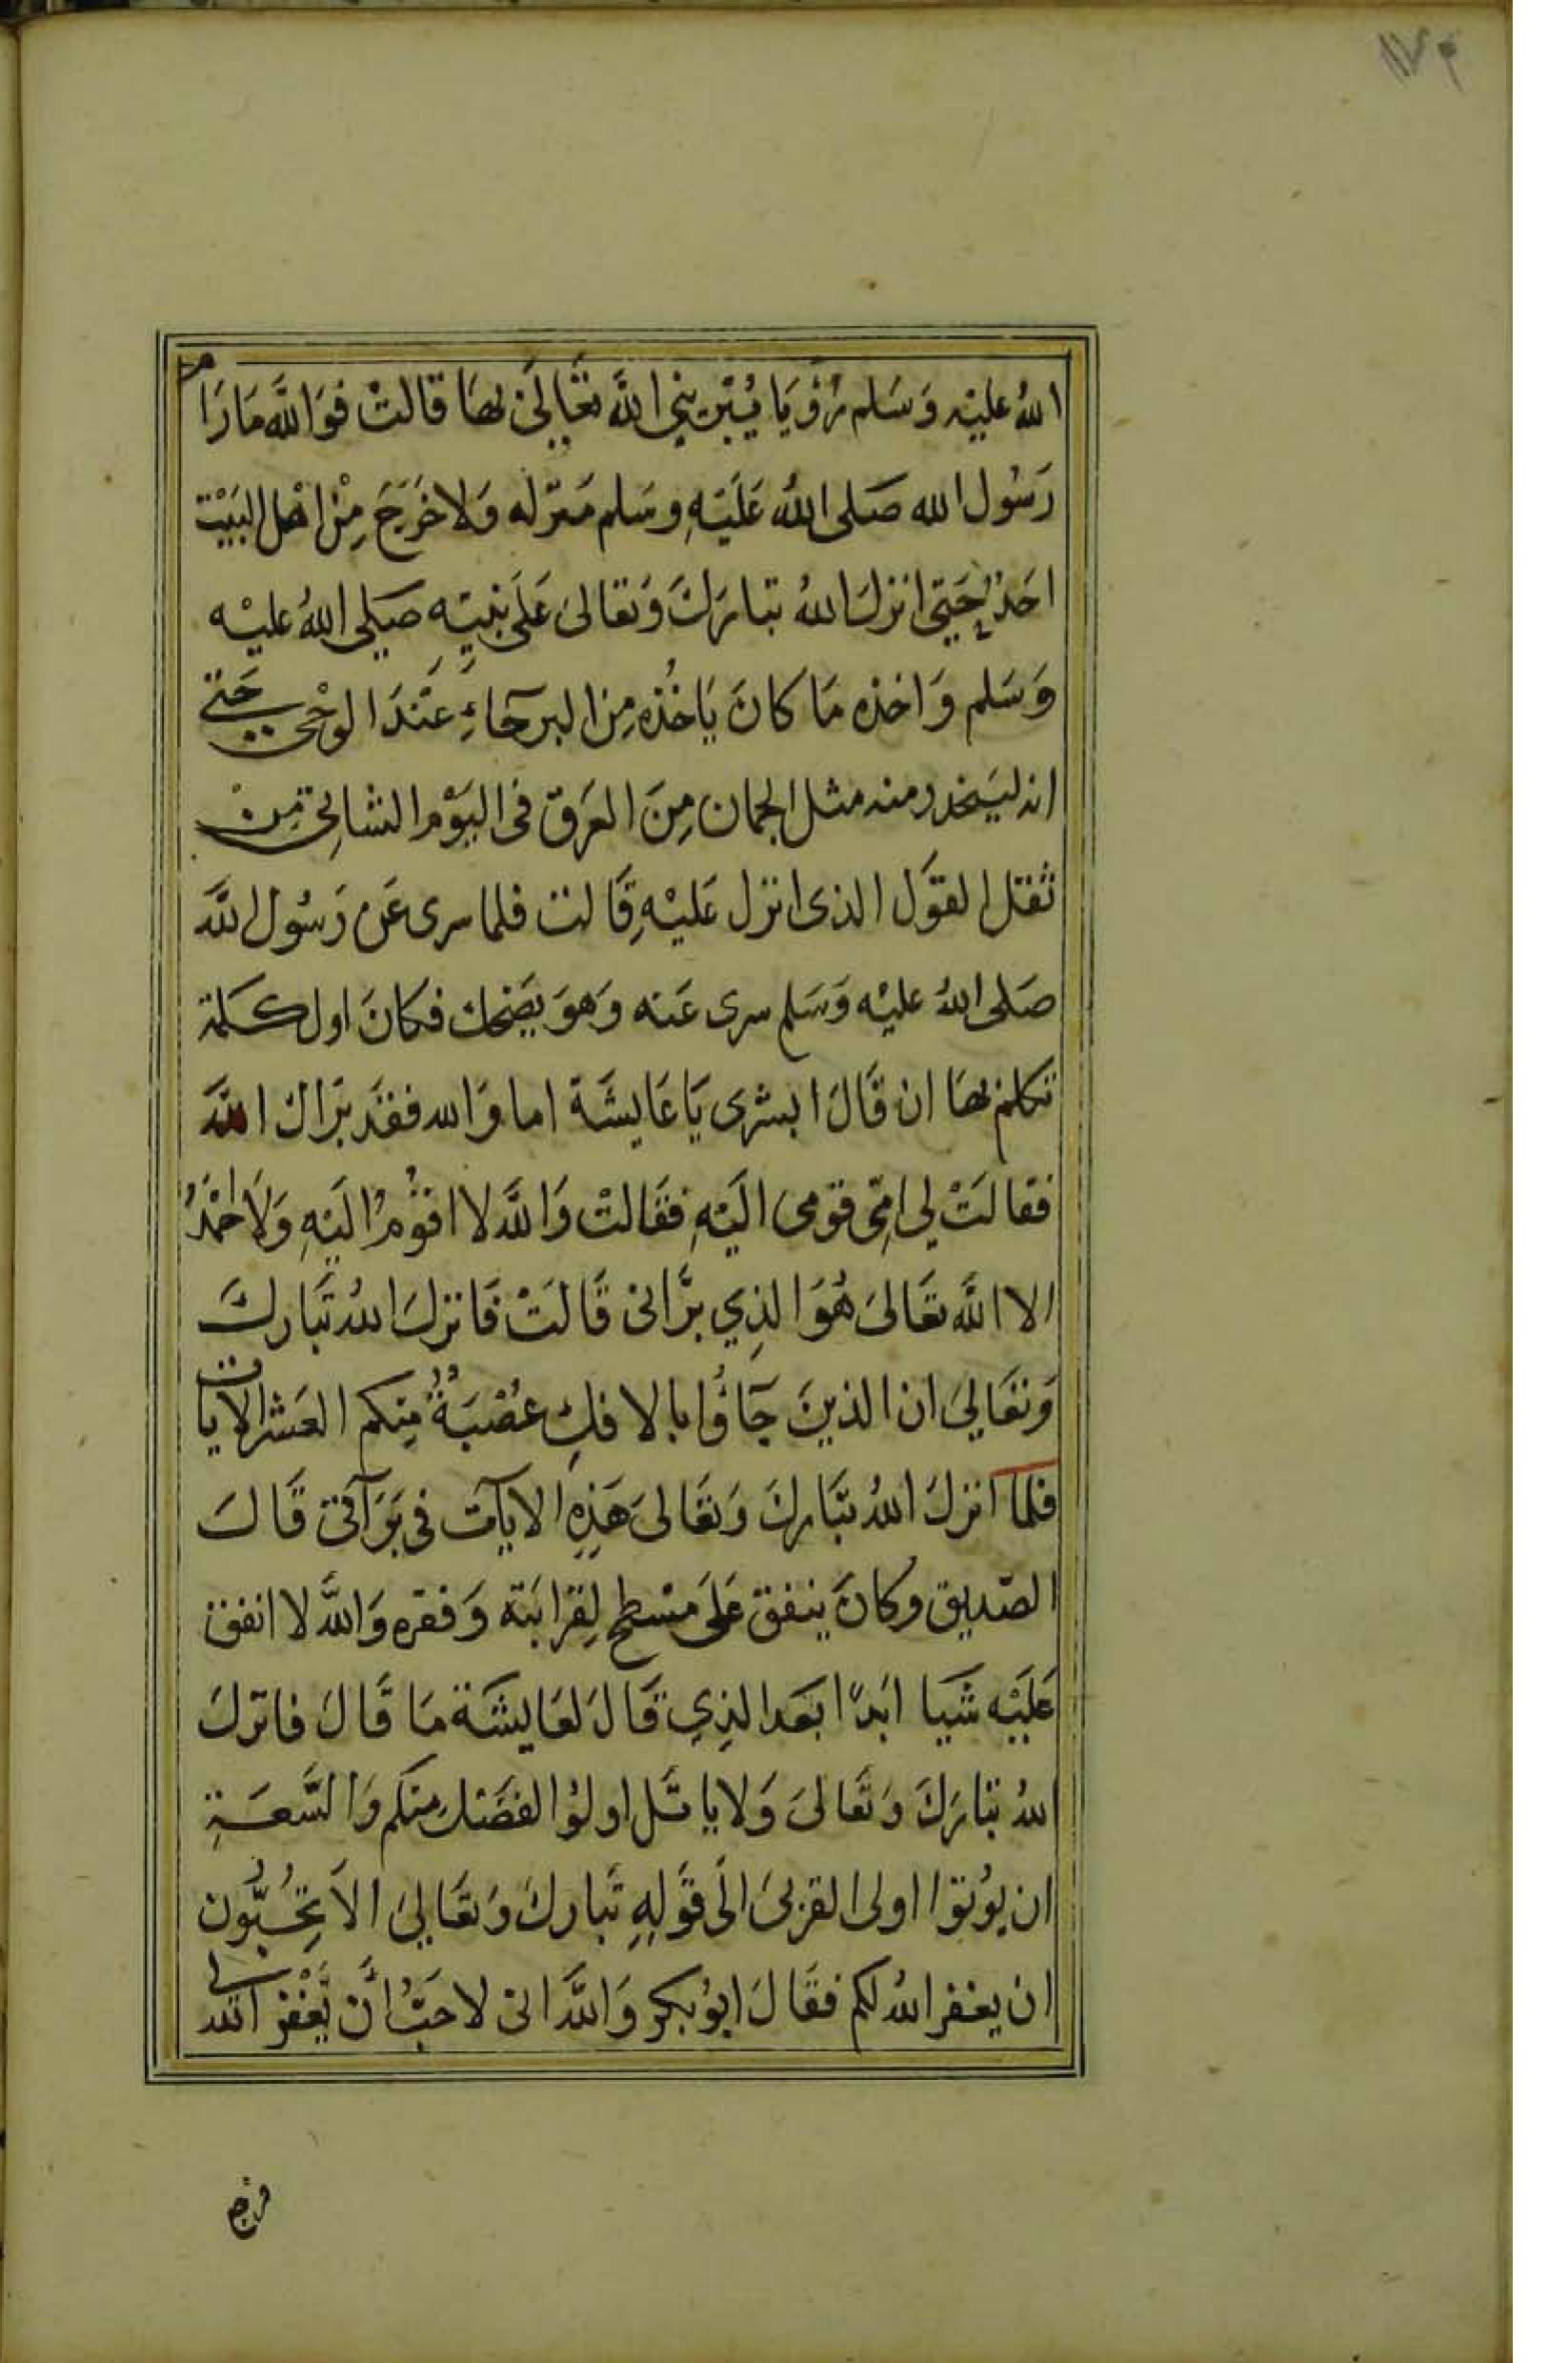 ١١٧٤
الله عليْه وَسَلم رُؤيَا يُبَرّئني اللهُ تعَالىَ بهَا قالتْ فوَاللهِ مَارَامَ
رَسُول الله صَلى اللهُ عَلَيْهِ وسَلم مَنزله وَلا خَرَجَ مِنْ اهْل البَيْت
احَدٌ حَتى انزلَ اللهُ تبارَكَ وَتعالىَ عَلَى نبيّهِ صَلى اللهُ عليْه
وَسَلم وَاخذه مَا كانَ يَاخُذه مِن البرحآءِ عنْدَ الوَحْى حَتى
انه ليَنحدر منه مثل الجمان مِنَ العَرَق فى اليَوْم الشاتِى مِنْ
ثقل القوَل الذى انزل عَليْهِ قَالت فلما سرى عَن رَسُول الله
صَلى اللهُ عليْه وَسَلم سرى عَنه وَهوَ يضحك فكانَ اول كلمة
تكلم بهَا ان قَالَ ابشرى يَا عَايشَة اما وَالله فقد برّاك الله
فقالَتْ لي امّى قومى اليْهِ فقَالتْ وَاللهِ لا اقوُمُ اليْهِ وَلَا احْمَدُ
الا اللهَ تعَالىَ هُوَ الذِي برَّانى قَالَتْ فَانزلَ اللهُ تَبَارك
وَتعَالىَ ان الذينَ جَآؤُا بالافكِ عُصْبَةٌ مِنكم العَشر الايات
فلما انزلَ اللهُ تبَاركَ وَتعَالىَ هَذِهِ الايآت فى بَرَآئتى قَالَ
الصّديق وكانَ ينفق عَلَى مسْطح لِقرَابَته وَفقره وَاللهِ لا انفق
عَليْه شَيا ابَدًا بَعَد الذِي قَالَ لعَايشَة مَا قَالَ فانزلَ
اللهُ تبَارَكَ وَتعَالىَ وَلا ياتَل اولوُا الفضَل مِنكم وَالسَّعَةِ
ان يوُتوا اولى القربىَ الَى قوَلِهِ تَباركَ وَتعَالىَ الاَ تُحِبُّون
ان يغفر اللهُ لكم فقَالَ ابوُ بكر وَاللهِ انى لاحَبُّ أَن يَّغْفر الله لى
فرجع